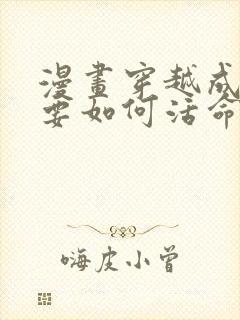 漫畫穿越成
要如何活命
嗨皮小曾